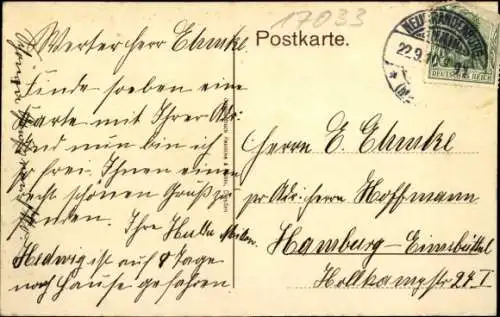 17033
Postkarte.
NEUBRANDENBURG
22.9.10
DEUTSCHES REICH
Werter Herr Ehmke
Finde soeben eine
Karte mit Ihrer Adr:
und nun bin ich
so frei Ihnen einen
recht schönen Gruß zu
senden. Ihre
Hedwig ist auf 8 Tage
nach Hause gefahren
Herrn E. Ehmke
pr Adr: Herrn Hoffmann
Hamburg-Eimsbüttel
Hellkampstr 27 I